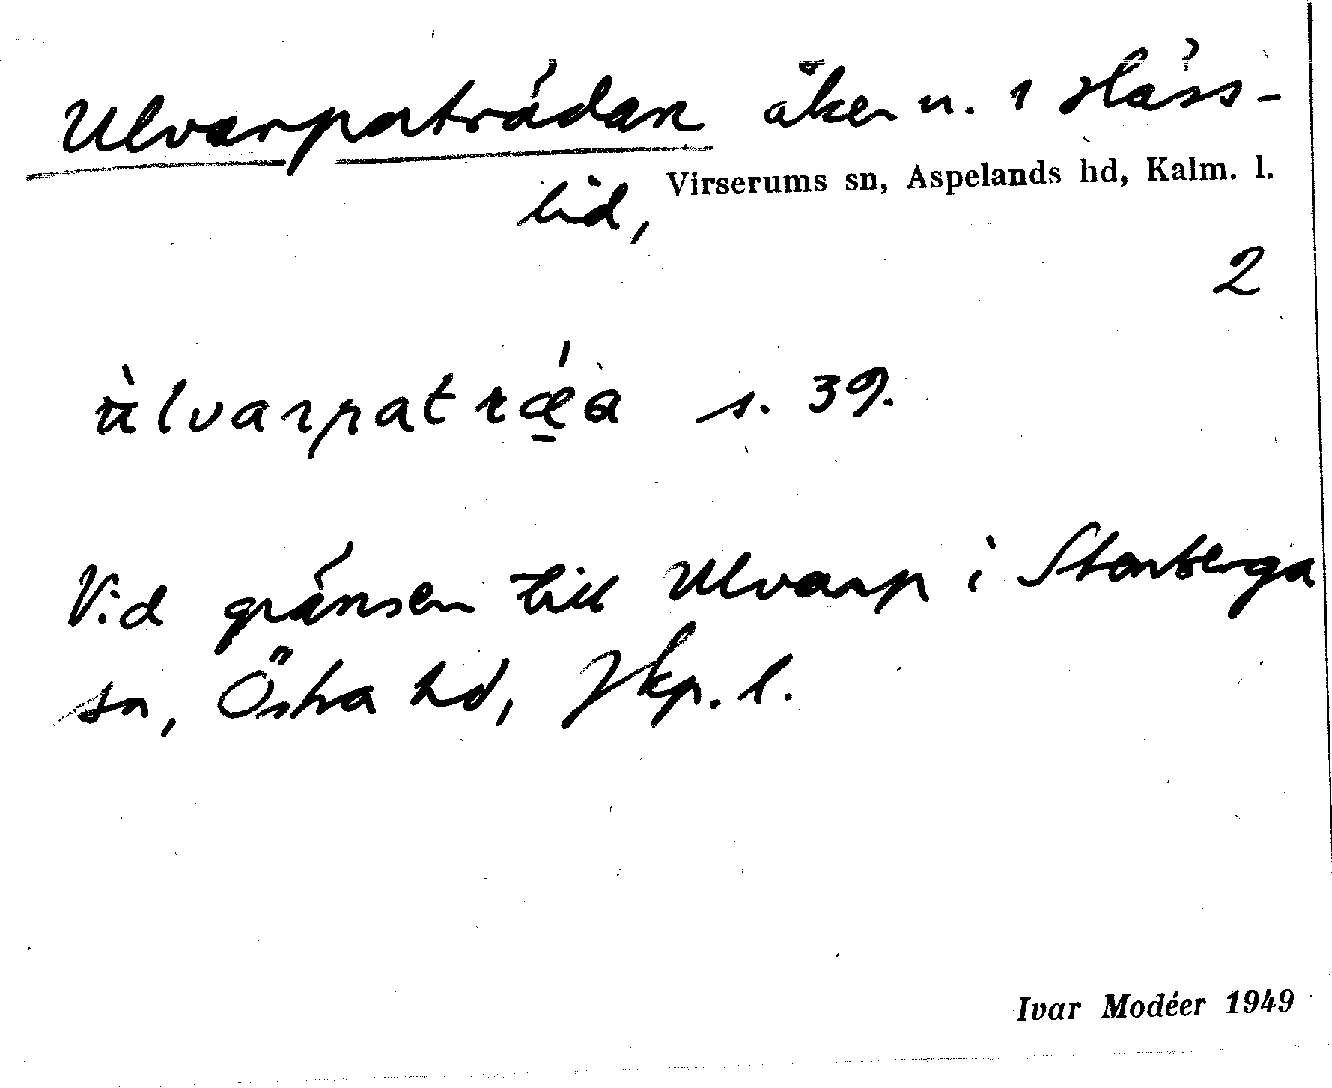 Ulvarpaträdan åker n. i Häss-
lid, Virserums sn, Aspelands hd, Kalm. l.
2
s. 39.
Vid gränsen till Ulvarp i Stenberga
sn, Östra hd, Jkp. l.
Ivar Modéer 1949